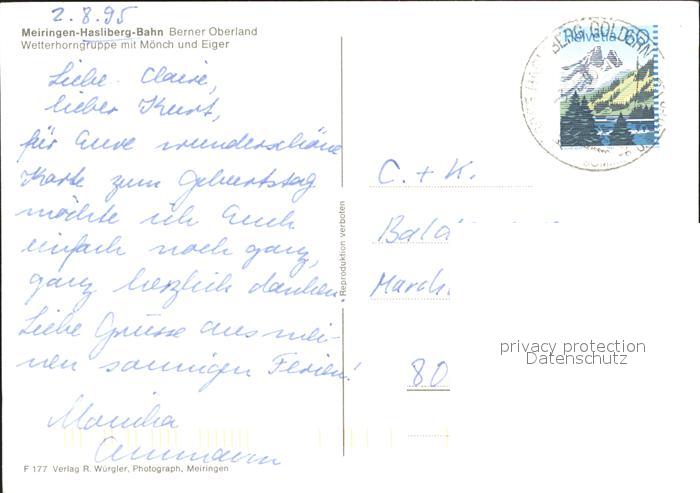 2.8.95
Meiringen-Hasliberg-Bahn Berner Oberland
Wetterhorngruppe mit Mönch und Eiger
Liebe Claire,
lieber Kurt,
für Eure wunderschöne
Karte zum Geburtstag
möchte ich Euch
einfach noch ganz,
ganz herzlich danken.
Liebe Grüsse aus mei-
nen sonnigen Ferien!
Monika
Ammann
F 177 Verlag R. Würgler, Photograph, Meiringen
Reproduktion verboten
Helvetia 60
BERG GOLDERN
C. + K.
Balá
March
80
privacy protection
Datenschutz